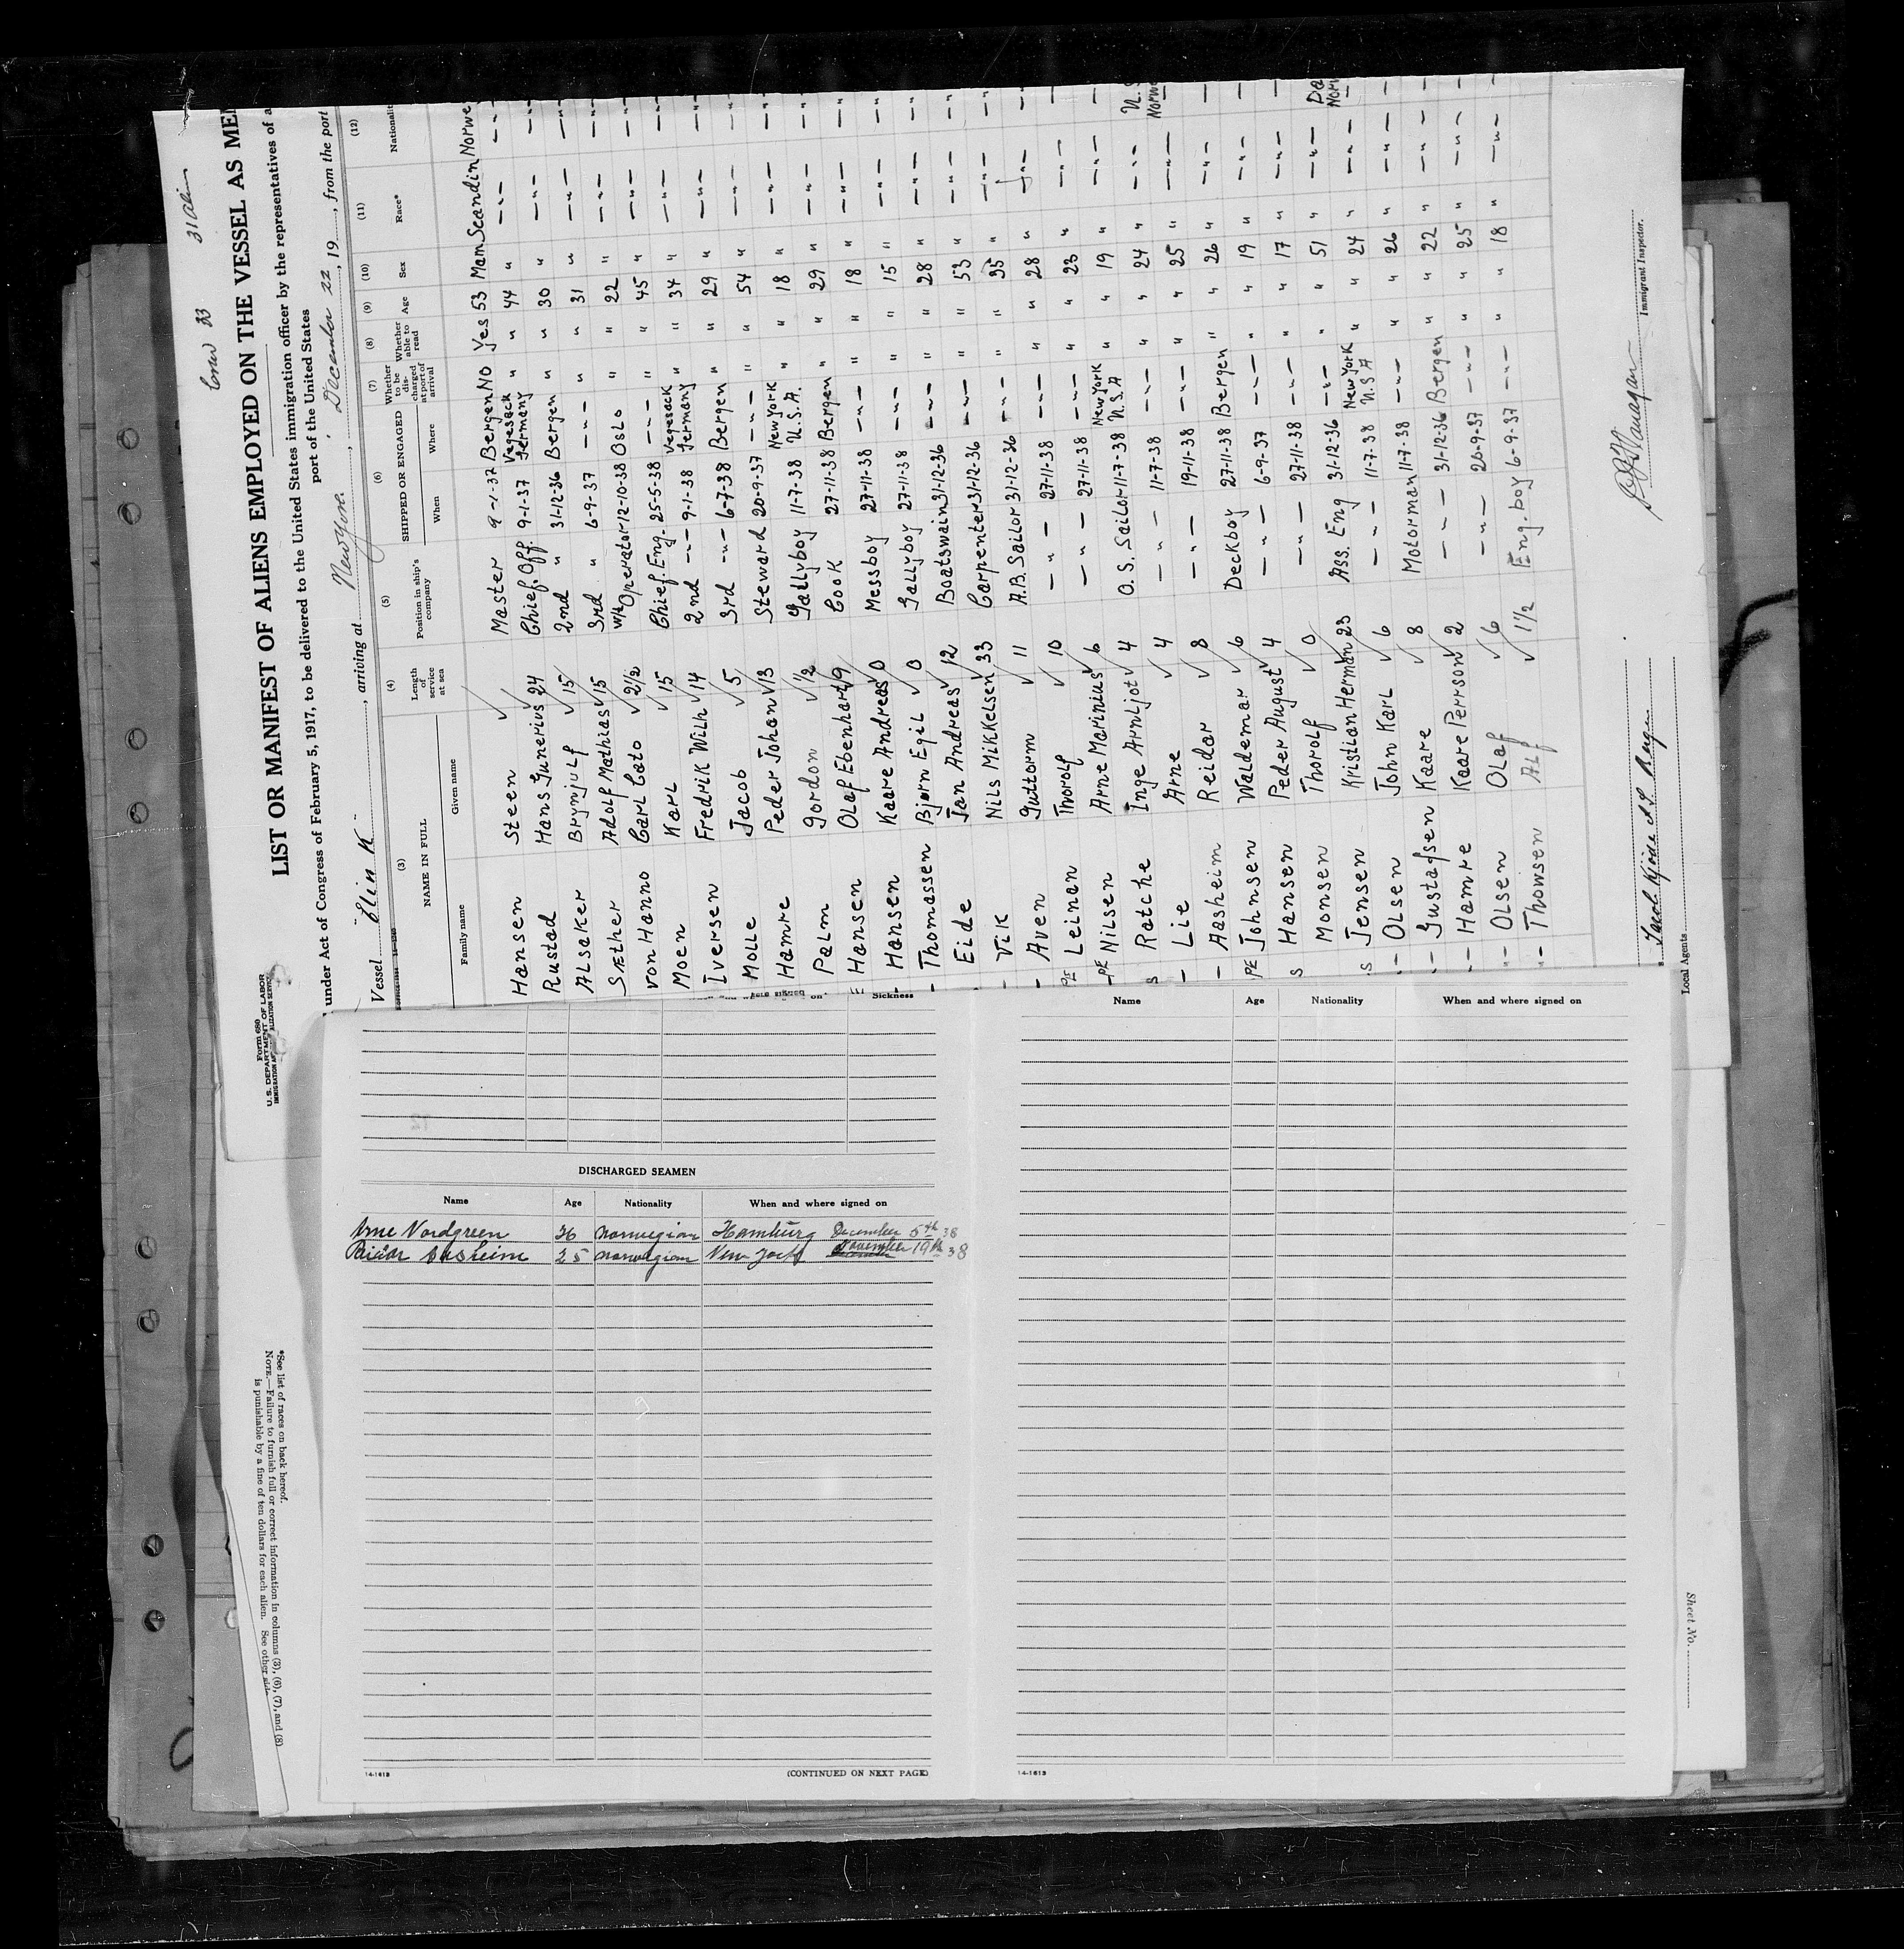 Crew 33 31 Alien
Form 680
U. S. DEPARTMENT OF LABOR
LIST OR MANIFEST OF ALIENS EMPLOYED ON THE VESSEL AS MEM
under Act of Congress of February 5, 1917, to be delivered to the United States immigration officer by the representatives of a
port of the United States
Vessel Elin K , arriving at New York , December 22, 19 , from the port
(3) (4) (5) (6) (7) (8) (9) (10) (11) (12)
NAME IN FULL Length of service at sea Position in ship's company SHIPPED OR ENGAGED Whether to be discharged at port of arrival Whether able to read Age Sex Race* Nationalit
Family name Given name When Where
Hansen Steen Master 9-1-37 Bergen No Yes 53 Man Scandin Norwe
Rustad Hans Gunerius 24 Chief. Off. 9-1-37 Vegesack Germany " " 44 " -"- -"-
Alsaker Brynjulf 15 2nd " 31-12-36 Bergen " " 30 " -"- -"-
Sæther Adolf Mathias 15 3rd " 6-9-37 -"- " " 31 " -"- -"-
von Hanno Carl Cato 2½ W/t Operator 12-10-38 Oslo " " 22 " -"- -"-
Moen Karl 15 Chief. Eng. 25-5-38 -"- " " 45 " -"- -"-
Iversen Fredrik Wilh 14 2nd -"- 9-1-38 Vegesack Germany " " 34 " -"- -"-
Molle Jacob 5 3rd -"- 6-7-38 Bergen " " 29 " -"- -"-
Hamre Peder Johan 13 Steward 20-9-37 -"- " " 54 " -"- -"-
Palm Gordon ½ Gallyboy 11-7-38 New York U.S.A. " " 18 " -"- -"-
Hansen Olaf Ebenhart 9 Cook 27-11-38 Bergen " " 29 " -"- -"-
Hansen Kaare Andreas 0 Messboy 27-11-38 -"- " " 18 " -"- -"-
Thomassen Bjørn Egil 0 Gallyboy 27-11-38 -"- " " 15 " -"- -"-
Eide Jan Andreas 12 Boatswain 31-12-36 -"- " " 28 " -"- -"-
Vik Nils Mikkelsen 33 Carpenter 31-12-36 -"- " " 53 " -"- -"-
Aven Guttorm 11 A.B. Sailor 31-12-36 -"- " " 35 " -"- -"-
Leinan Thorolf 10 -"- 27-11-38 -"- " " 28 " -"- -"-
Nilsen Arne Marinius 6 -"- 27-11-38 -"- " " 23 " -"- -"-
Ratche Inge Arnljot 4 O.S. Sailor 11-7-38 New York U.S.A " " 19 " -"- U.S
Lie Arne 4 -"- 11-7-38 -"- " " 24 " -"- Norwe
Aasheim Reidar 8 -"- 19-11-38 -"- " " 25 " -"- -"-
Johnsen Waldemar 6 Deckboy 27-11-38 Bergen " " 26 " -"- -"-
Hansen Peder August 4 -"- 6-9-37 -"- " " 19 " -"- -"-
Monsen Thorolf 0 -"- 27-11-38 -"- " " 17 " -"- -"-
Jensen Kristian Herman 23 Ass. Eng 31-12-36 -"- " " 51 " -"- Da
Olsen John Karl 6 -"- 11-7-38 New York U.S.A " " 24 " -"- Norw
Gustafsen Kaare 8 Motorman 11-7-38 -"- " " 26 " -"- -"-
Hamre Kaare Perrson 2 -"- 31-12-36 Bergen " " 22 " -"- -"-
Olsen Olaf 6 -"- 20-9-37 -"- " " 25 " -"- -"-
Thowsen Alf 1½ Eng. boy 6-9-37 -"- " " 18 " -"- -"-
Immigrant Inspector.
Local Agents
Sickness
DISCHARGED SEAMEN
Name Age Nationality When and where signed on
Arne Nordgreen 26 norwegian Hamburg December 5th 38
Reidar Aasheim 25 norwegian New York November 19th 38
14-1613 (CONTINUED ON NEXT PAGE)
Name Age Nationality When and where signed on
14-1613
*See list of races on back hereof.
NOTE.—Failure to furnish full or correct information in columns (3), (6), (7), and (8)
is punishable by a fine of ten dollars for each alien. See other side.
Sheet No.